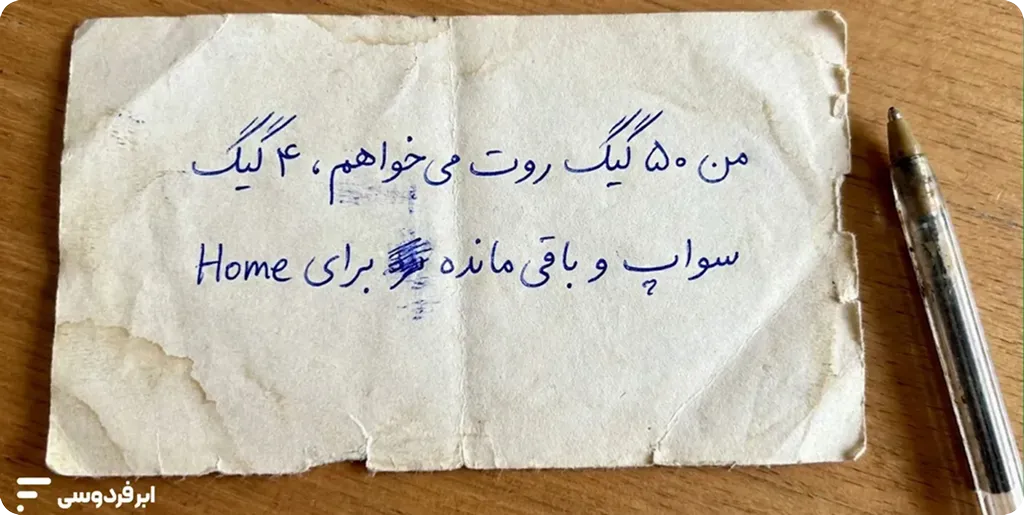 من ۵۰ گیگ روت می‌خواهم، ۴ گیگ
سواپ و باقی‌مانده برای Home
ابر فردوسی